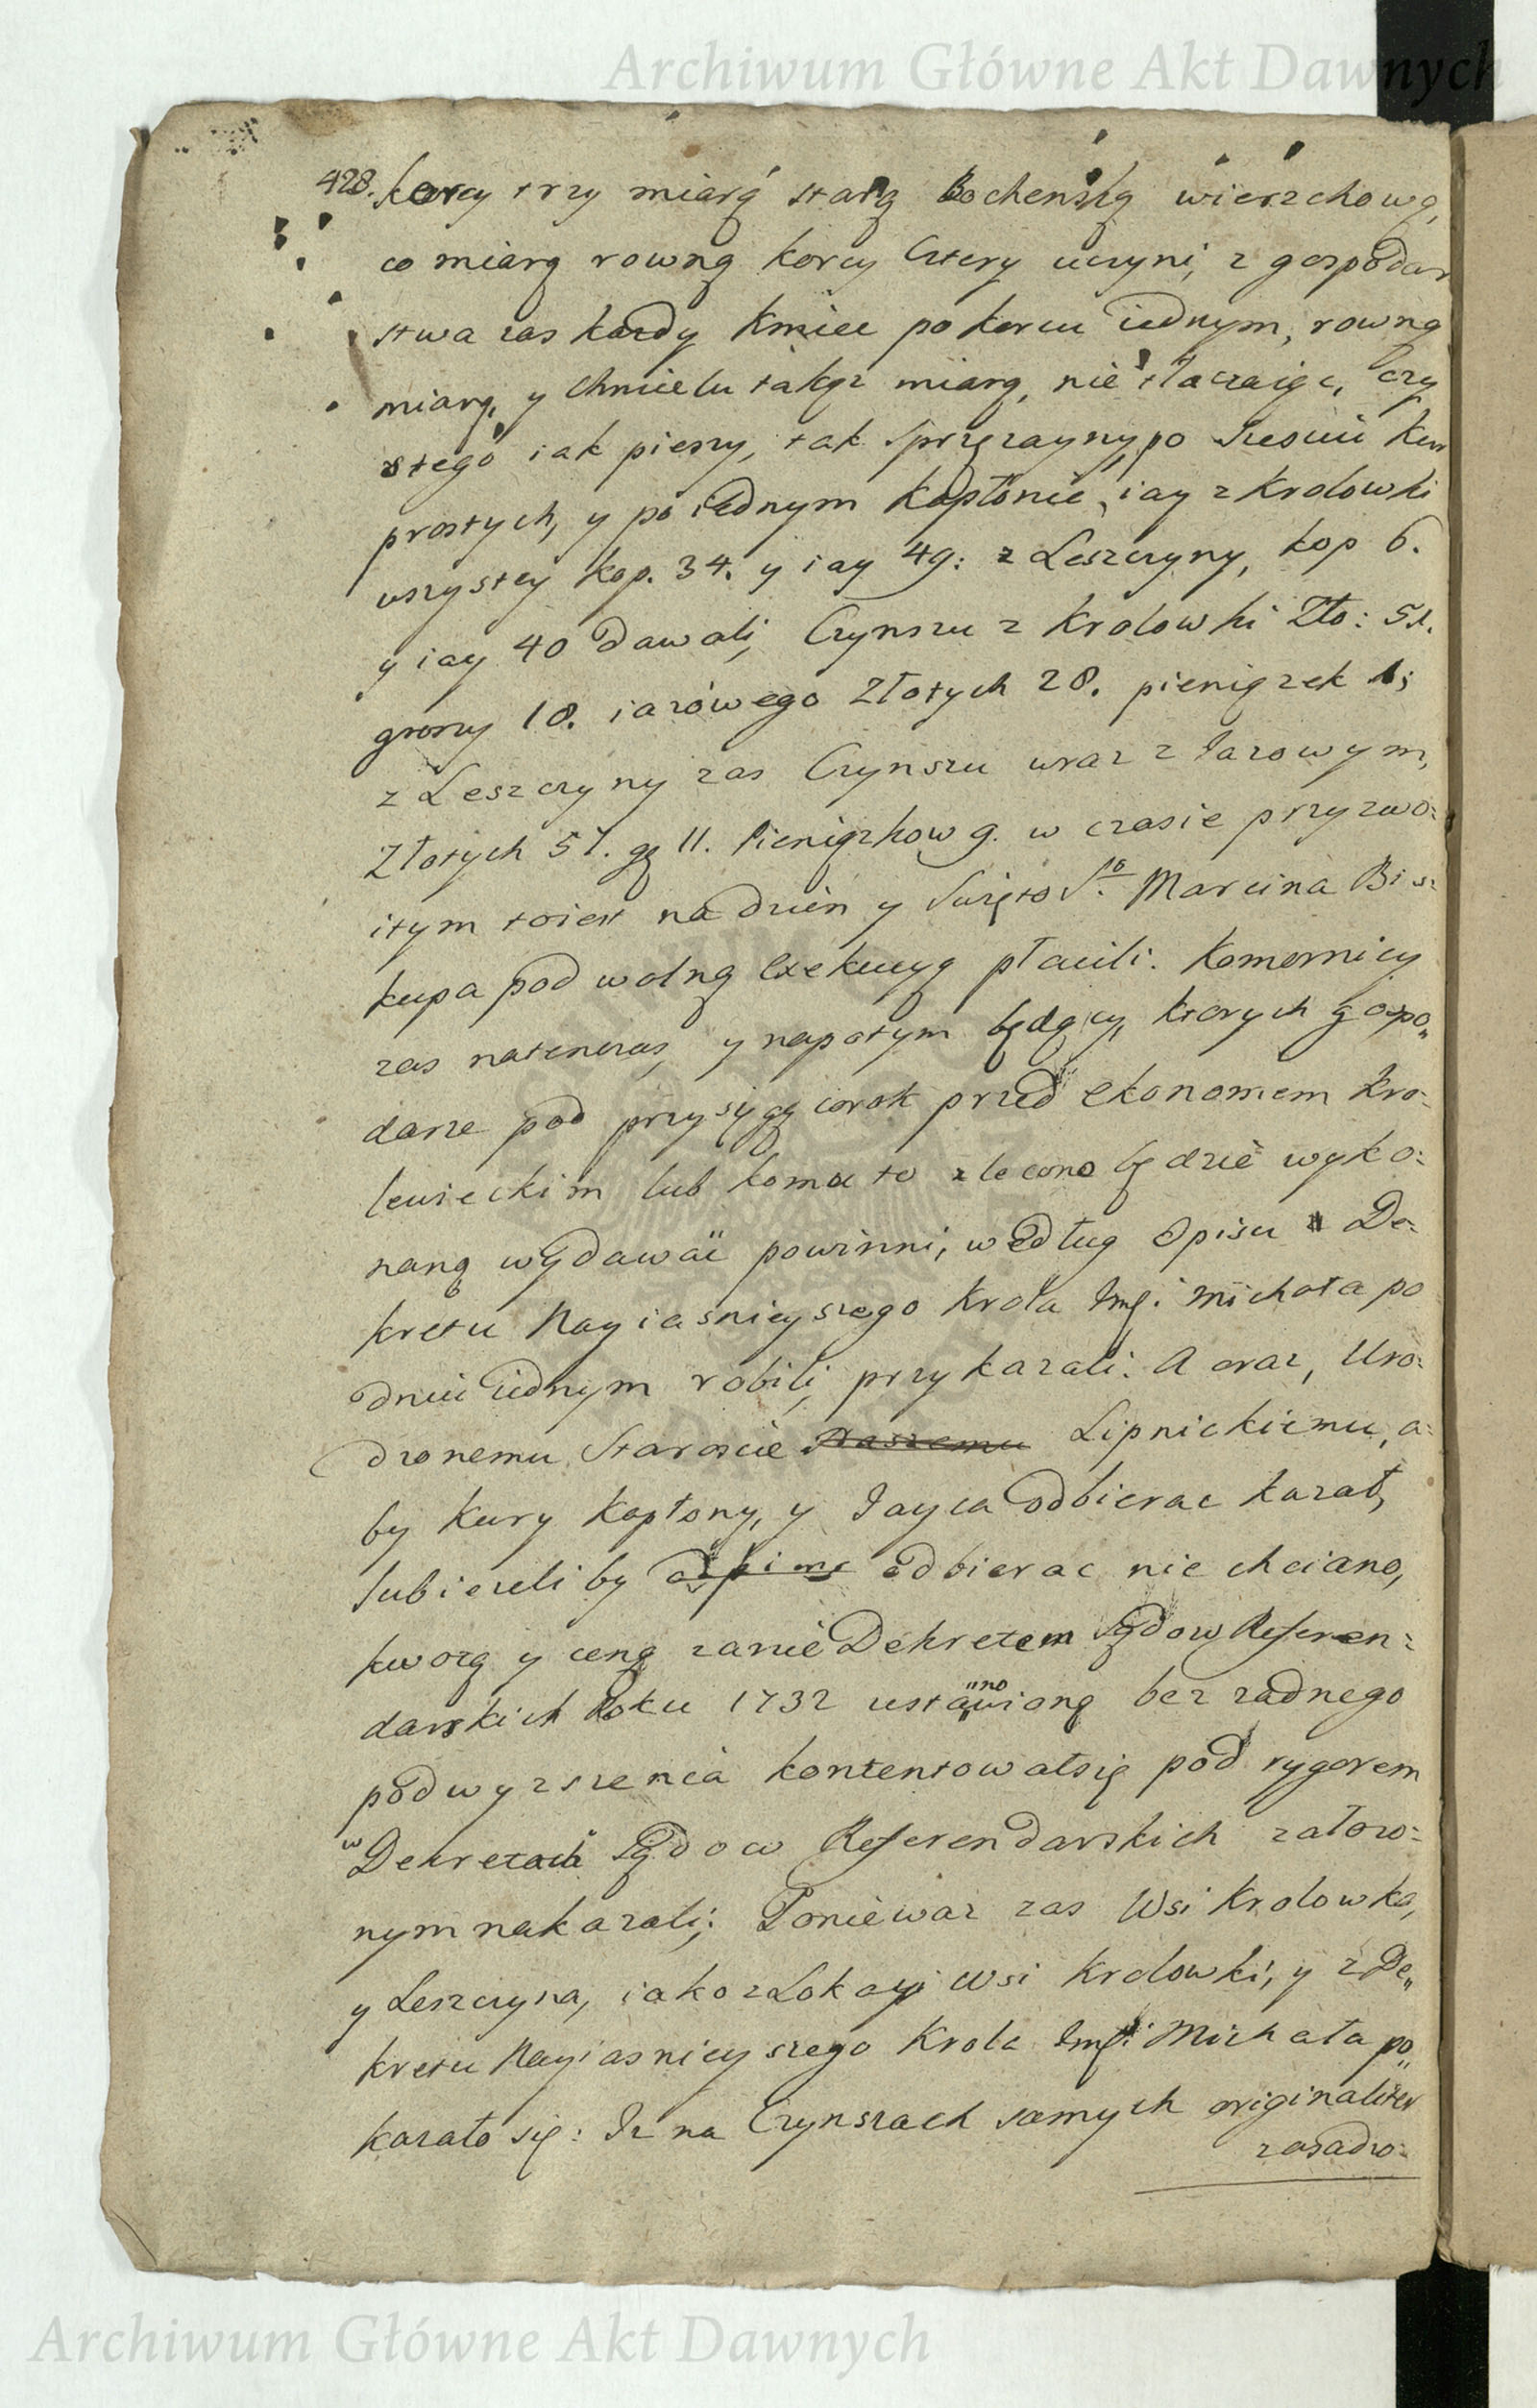 Archiwum Główne Akt Dawnych
428. korcy trzy miarą starą Bochenską wierzchową,
co miarą rowną korcy Cztery uczyni, z gospodar
stwa zas kazdy Kmiec po korcu iednym, rowną
miarą, y Chmielu takąz miarą, nie tłacząiąc, Czy
stego iak pieszy, tak Sprzęzayny, po Szesciu kur
prostych, y po iednym Kapłonie, iay z Krolowki
wszystey kop. 34. y iay 49: z Leszczyny, kop 6.
y iay 40 dawali, Czynszu z Krolowki Zło: 51.
groszy 18. iazowego Złotych 28. pieniązek 1;
z Leszczyny zas Czynszu wraz z Jazowym,
Złotych 51. gr 11. Pieniązkow 9. w czasie przyzwo:
itym toiest na dzien y Swięto S.go Marcina Bis:
kupa pod wolną Exekucyą płacili. Komornicy
zas natenczas, y napotym będący, ktorych gospo„
darze pod przysięgą corok przed Ekonomem Kro:
lewieckim lub komu to zlecono będzie wyko:
naną wydawać powinni, według Opisu De:
kretu Nayiasnieyszego Krola Jmci Michała po
dniu iednym robili, przykazali. A oraz, Uro:
dzonemu Staroscie Naszemu Lipnickiemu, a:
by Kury Kapłony, y Jayca odbierac kazał,
lubiezeliby odbierac nie chciano,
kwotą y ceną zanie Dekretem Sądow Referen:
darskich Roku 1732 ustawioną bez zadnego
„no
podwyzszenia kontentowałsię pod rygorem
w Dekretach Sądow Referendarskich załozo:
nym nakazali; Poniewaz zas Wsi Krolowka,
y Leszczyna, iako z Lokacyi Wsi Krolowki, y z De„
kretu Nayiasnieyszego Krola Jmci Michała po„
kazało się: Iz na Czynszach samych originaliter
zasadzo:
Archiwum Główne Akt Dawnych